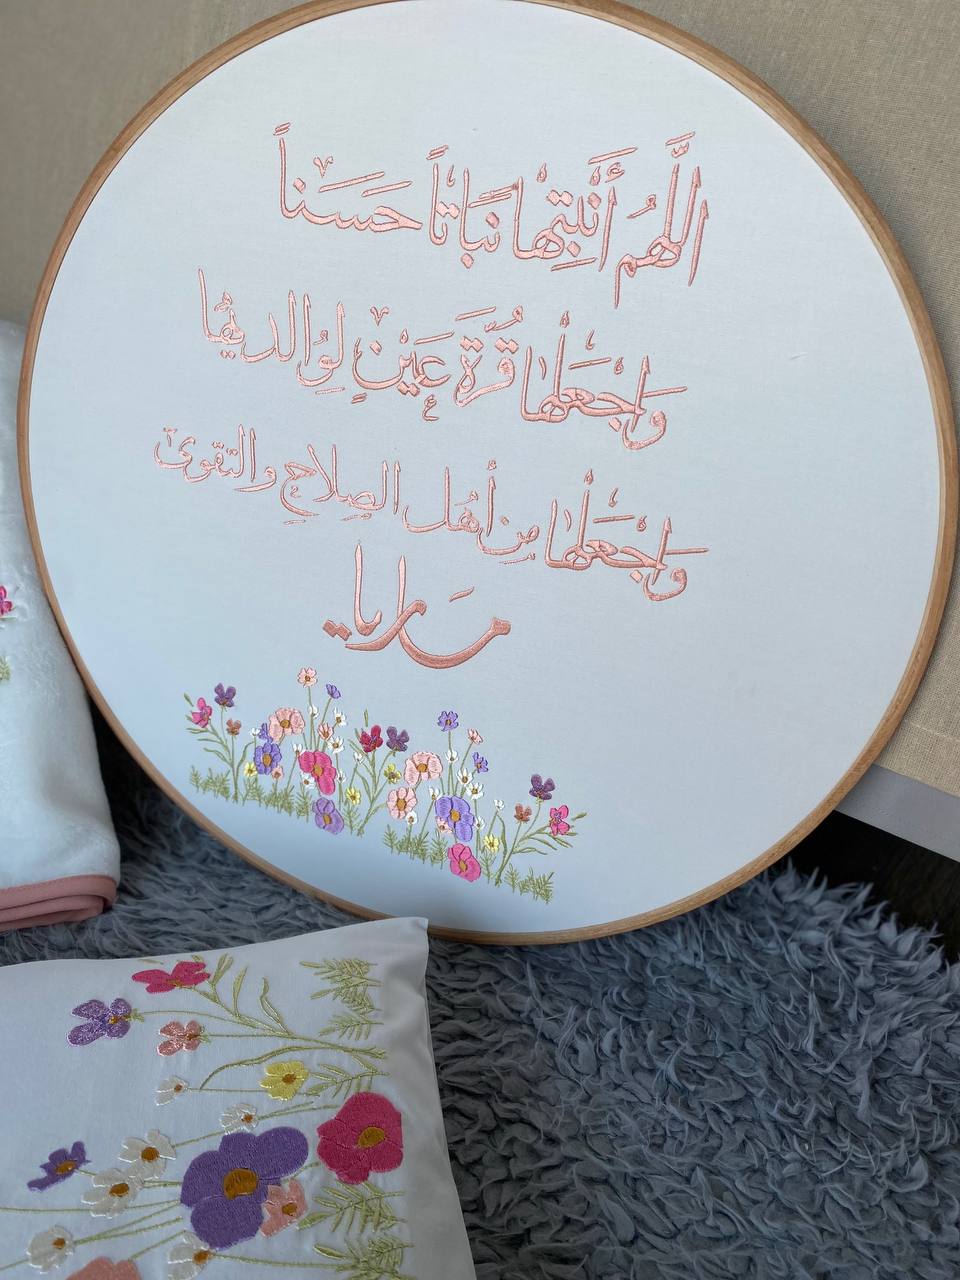 اللَّهُمَّ أَنْبِتْهَا نَبَاتاً حَسَناً
وَاجْعَلْهَا قُرَّةَ عَيْنٍ لِوَالِدَيْهَا
وَاجْعَلْهَا مِنْ أَهْلِ الصَّلَاحِ وَالتَّقْوَى
مَاريا